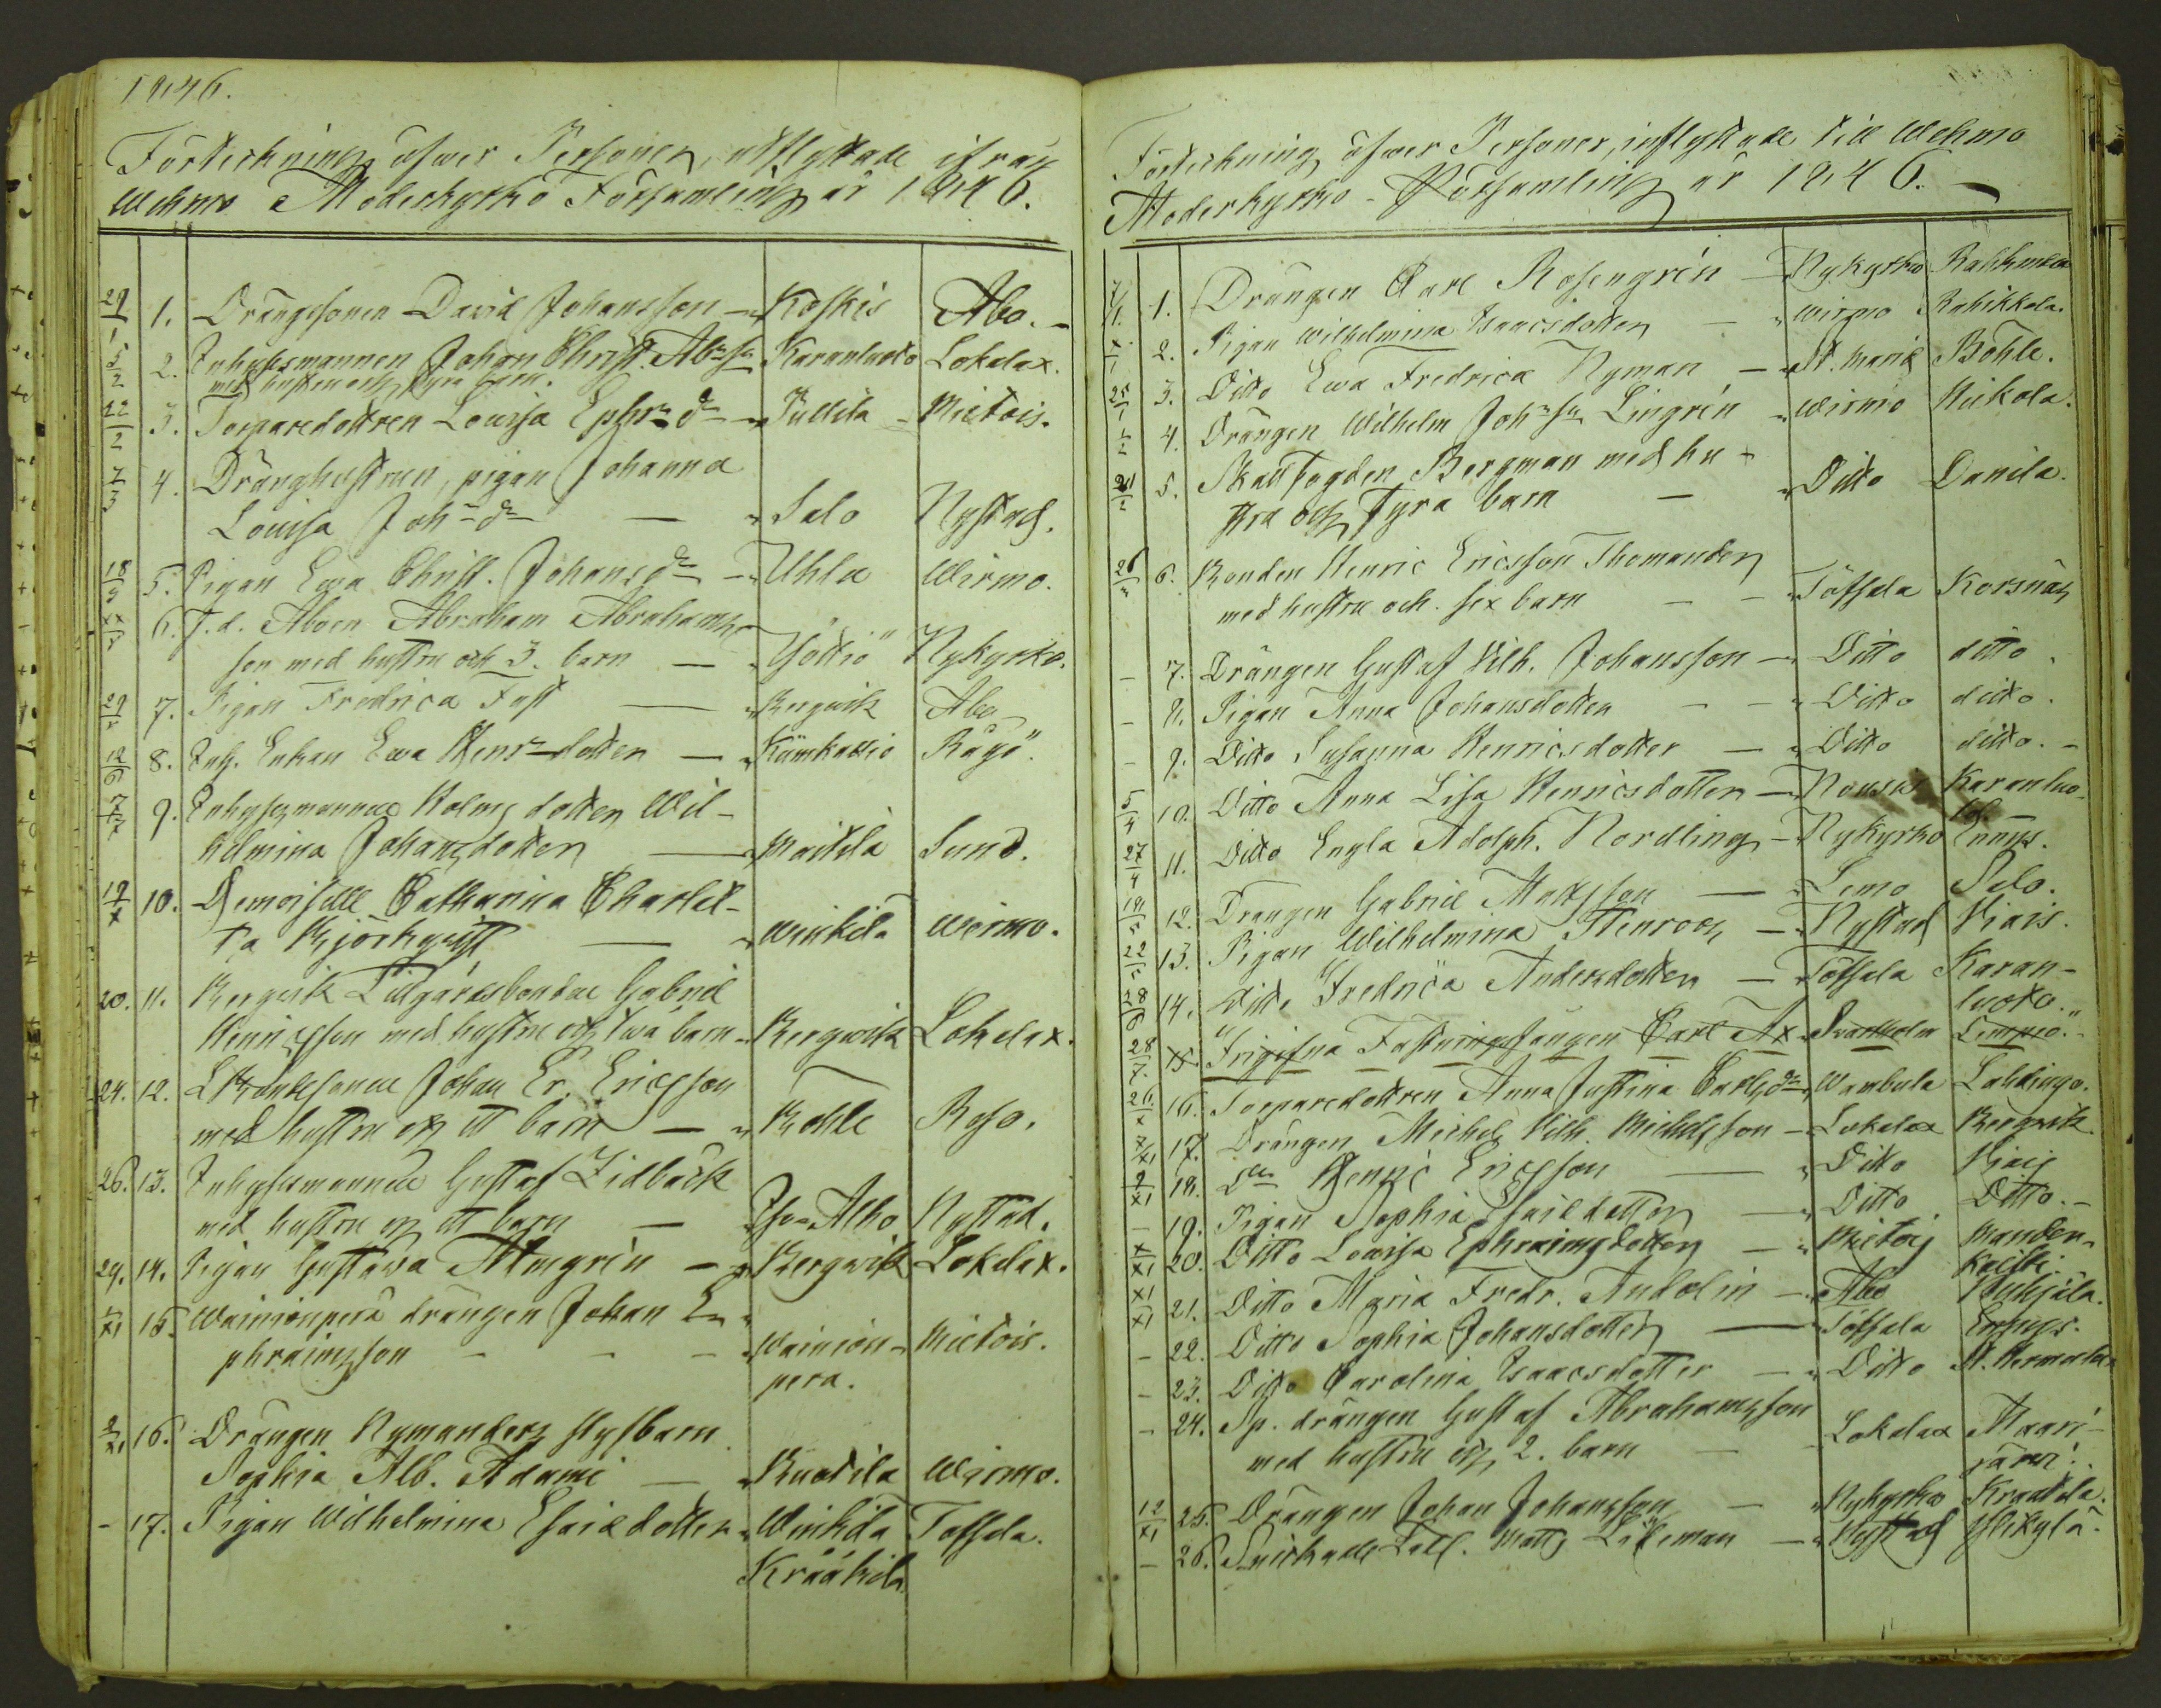 1846.
Förteckning öfwer Personer, utflyttade ifrån
Wehmo Moderkyrko Församling år 1846.
29/1 1. Drängsonen David Johansson Koskis Åbo.
5/2 2. Inhysesmannen Johan Christ. Abrsn Karanluoto Lokalax.
med hustru och fyra barn.
22/2 3. Torparedottren Lovisa Ephrsdr Pullila Mietois.
7/3 4. Dränghustrun, pigan Johanna
Lovisa Johsdr Salo Nystad.
18/3 5. Pigan Ewa Christ. Johansdr Uhlu Wirmo.
6. F.d. Åboen Abraham Abrahams-
son med hustru och 3. barn Yöttiö Nykyrko.
7. Pigan Fredrica Fast Bergvik Åbo
12/6 8. Inh. Enkan Ewa Henrsdotter Kämkattio Rågö.
9. Inhysesmannen Holms dotter Wil-
helmina Johansdotter Maitila Sund.
10. Demoiselle Catharina Charlot-
ta Björkqvist Winkila Wirmo.
20. 11. Bergvik Lillgårdsbonden Gabriel
Henricsson med hustru och twå barn Bergwik Lokalax.
24. 12. Johan Er. Ericsson
med hustru och ett barn Bohle Reso.
26. 13. Inhysesmannen Gustaf Lidbäck
med hustru och ett barn Iso-Alho Nystad.
29. 14. Pigan Gustava Almgrén Bergwik Lokalax.
15. Wainionperä drängen Johan E-
phraimsson Wainion- Mietois.
perä.
2/XI 16. Drängen Nymanders styfbarn
Sophia Alb. Adami Kuotila Wirmo.
- 17. Pigan Wilhelmina Esaiedotter Winkila Töfsala.
Krääkilä
Förteckning öfwer Personer, inflyttade till Wehmo
Moderkyrko-Församling år 1846.
1. Drängen Carl Rosengrén Nykyrko Rahkmala
2. Pigan Wilhelmina Isaacsdotter Wirmo Rahikkala.
25/1 3. Ditto Ewa Fredrica Nyman St. Marie Bohle.
4. Drängen Wilhelm Johsn Lingrén Wirmo Nickola.
5. Skallfogden Bergman med hu-
stru och fyra barn Ditto Danila.
6. Bonden Henric Ericsson Thomander
med hustru och sex barn Töfsala Korsnäs
- 7. Drängen Gustaf Vilh. Johansson Ditto ditto.
- 8. Pigan Anna Johansdotter Ditto ditto.
- 9. Ditto Susanna Henricsdotter Ditto ditto.
5/4 10. Ditto Anna Lisa Henricsdotter Nousis Karanluo-
to.
27/4 11. Ditto Engla Adolph. Nordling Nykyrko Ennys.
12. Drängen Gabriel Mattsson Lemo Salo.
13. Pigan Wilhelmina Stenroos Nystad Wiais.
14. Ditto Fredrica Andersdotter Töfsala Karan-
luoto.
28/7 15. Carl Ax Svartholm Lempo.
16. Torparedottren Anna Justina Carlsdr Wambula Lahdingo.
7/XI 17. Drängen Michel Vilh. Michelsson Lokalax Bergwik.
9/XI 18. Henric Ericsson Ditto Wiais
- 19. Pigan Sophia Esaiedotter Ditto Ditto.
20. Ditto Lovisa Ephraimsdotter Mietois Mander-
kallki.
XI/XI 21. Ditto Maria Fredr. Andelin Åbo Puhjala.
- 22. Ditto Sophia Johansdotter Töfsala Ennys.
- 23. Ditto Carolina Isaacsdotter Ditto St. Hermola
- 24. Sp. drängen Gustaf Abrahamsson
med hustru och 2. barn Lokalax Maari-
järvi.
12/XI 25. Drängen Johan Johansson Nykyrko Kraakila.
- 26. Matts Nystad Ylikylä.